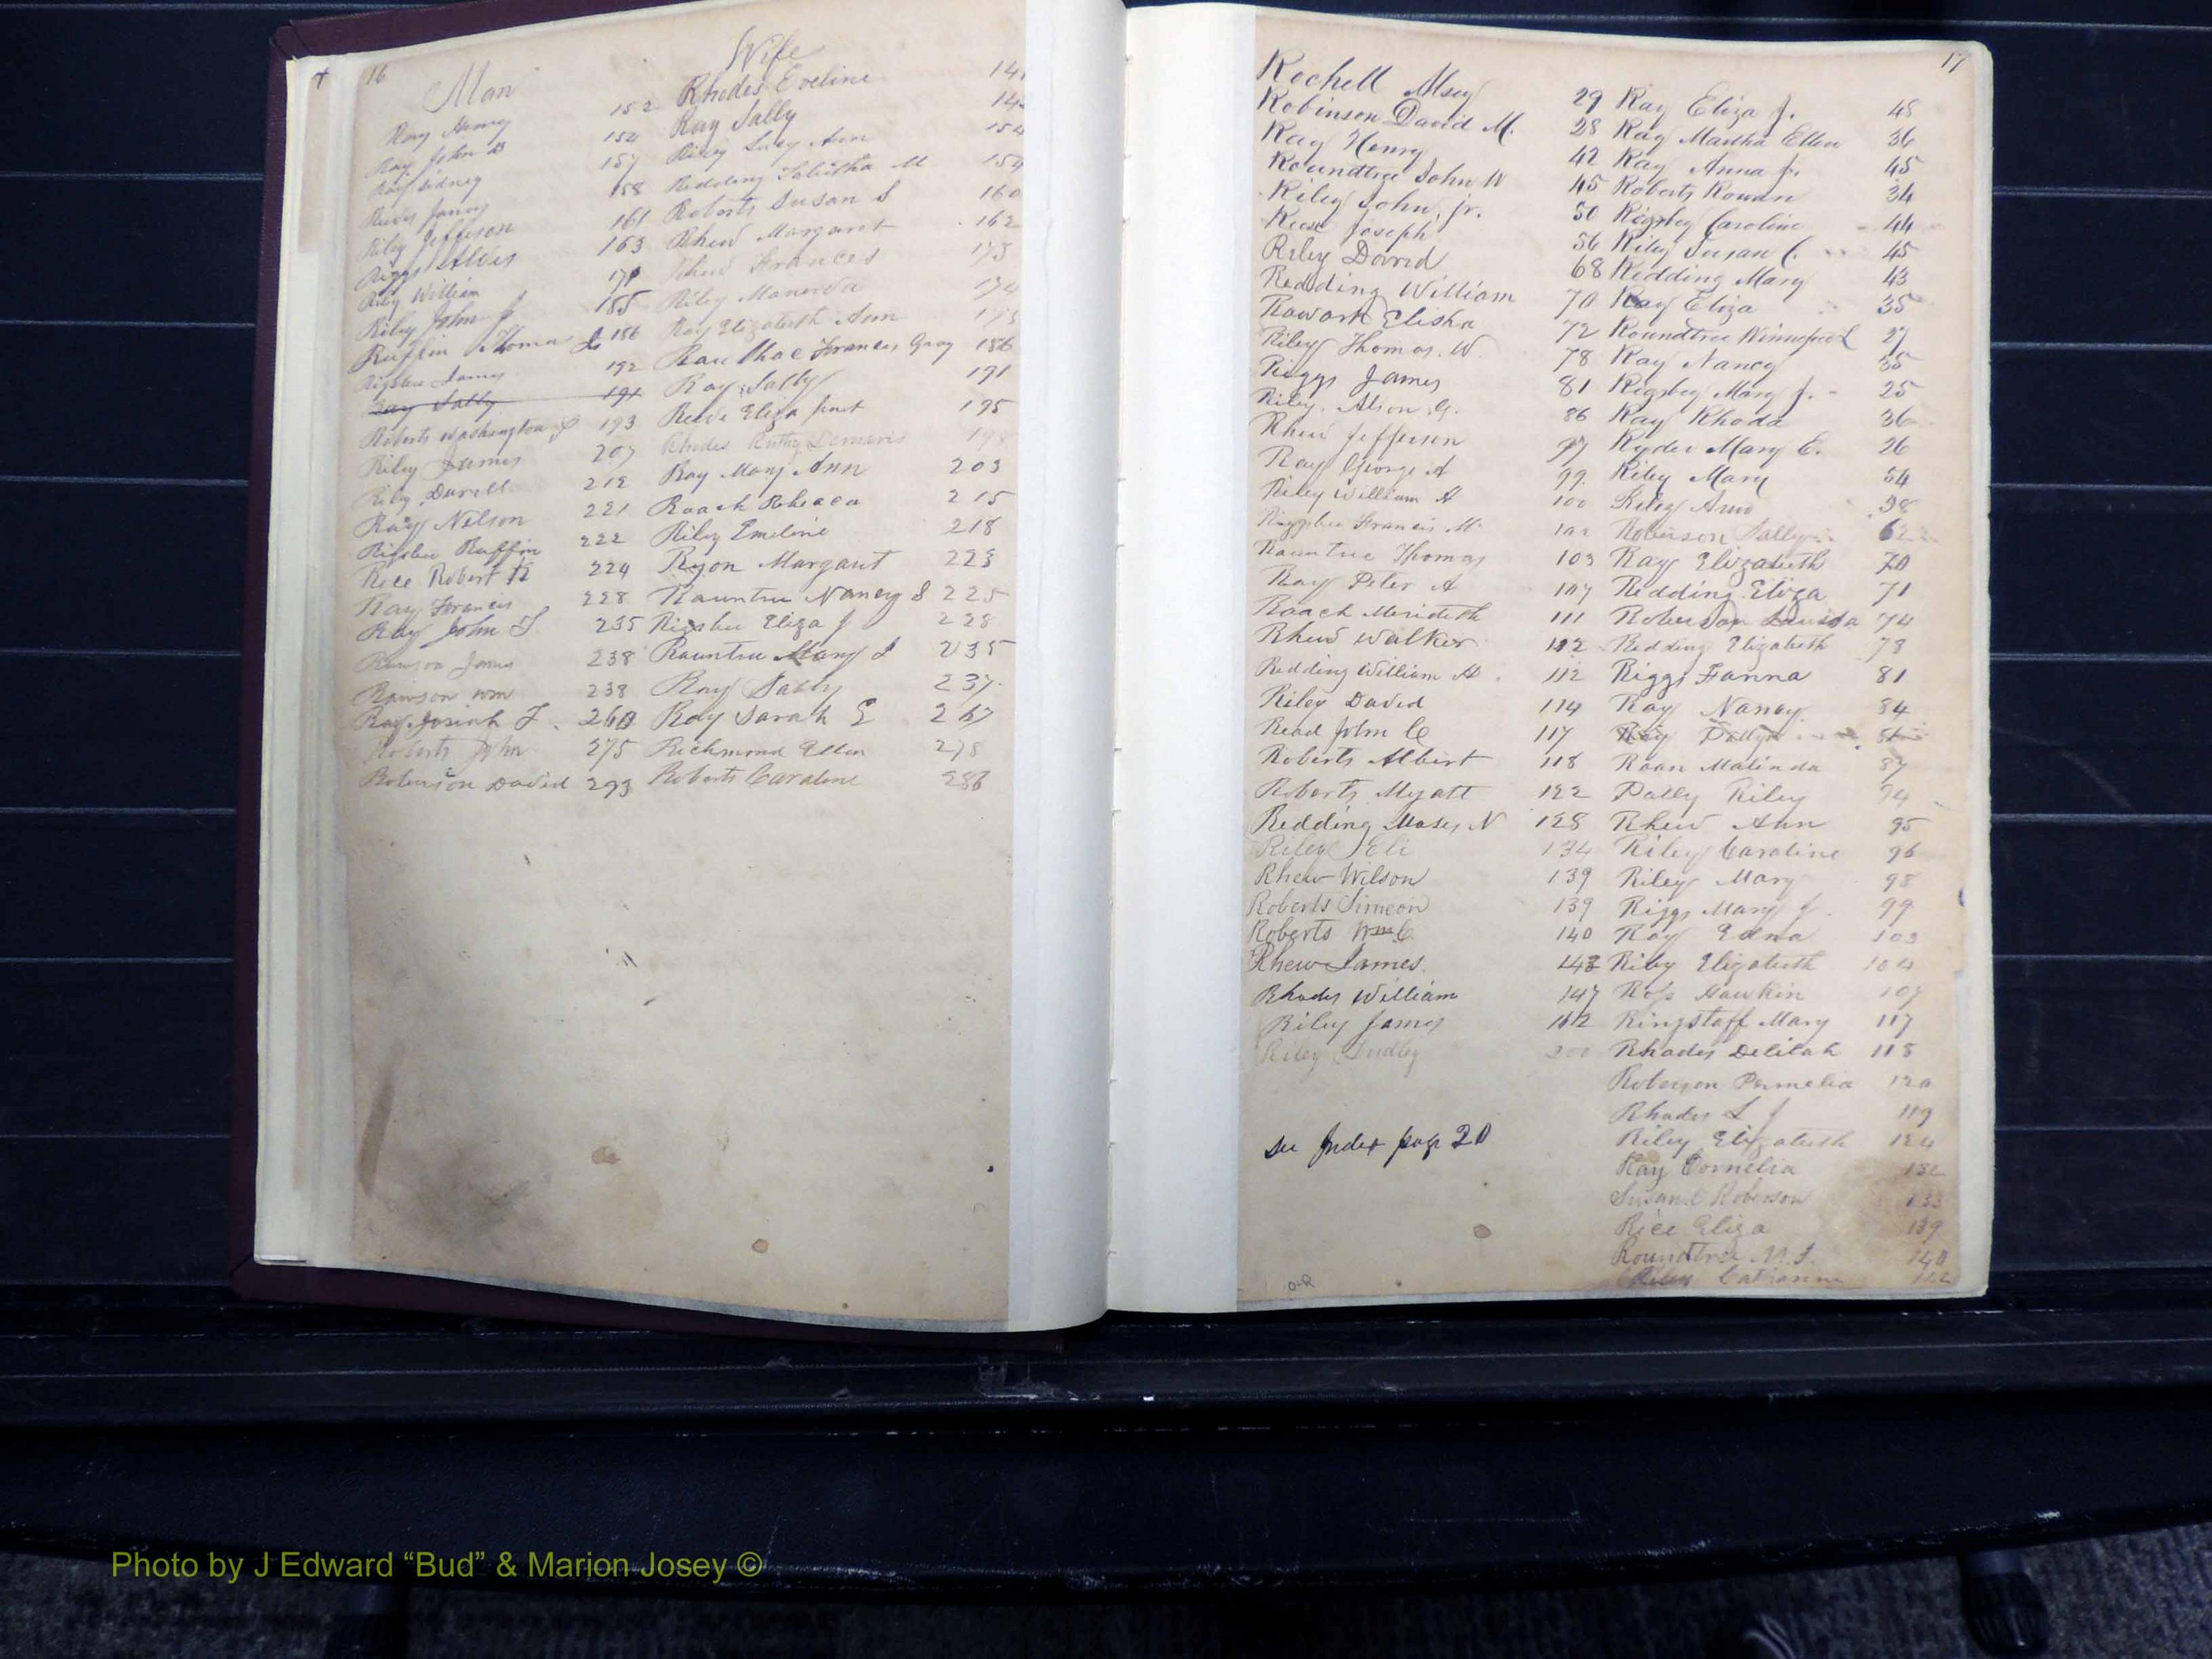 16
Man Wife
Ray Henry 152 Rhodes Eveline 141
Ray John B 154 Ray Sally 142
Ray Sidney 157 Riley Lucy Ann 154
158 Redding Tabitha M 159
Riley Jefferson 161 Roberts Susan S 160
Riggs Alvis 163 Rhew Margaret 162
Riley William 171 Rhew Frances 173
Riley John J 185 Riley Manerva 174
Ruffin Thomas 186 Ray Elizabeth Ann
Rigsbee James 192 Frances Gray 186
Ray Sally 191 Ray Sally 191
Roberts Washington 193 Reeve Eliza 195
Riley James 207 Rhodes Ruthy Demaris 198
Riley 212 Ray Mary Ann 203
Ray Nelson 221 Roach Rebecca 215
Rigsbee Ruffin 222 Riley Emeline 218
Rice Robert 224 Ryon Margaret 223
Ray Francis 228 Rauntree Nancy S 225
Ray John T. 235 Rigsbee Eliza J 228
James 238 Rauntree Mary J 235
Wm 238 Ray Sally 237
Ray Josiah T. 260 Ray Sarah E 267
Roberts John 275 Richmond Ellen 278
Roberson David 293 Roberts Caroline 286
17
Rochell 29 Ray Eliza J. 48
Robinson David M. 28 Ray Martha Ellen 36
Ray Henry 42 Ray Anna J. 45
Roundtree John W 45 Roberts Rowan 34
Riley John, jr. 50 Rigsbey Caroline 44
Reese Joseph 56 Riley Susan C. 45
Riley David 68 Redding Mary 43
Redding William 70 Ray Eliza 35
Elisha 72 Roundtree Winnefred 27
Riley Thomas. W. 78 Ray Nancy 35
Riggs James 81 Rigsbey Mary J. 25
Riley. G. 86 Ray Rhoda 36
Rhew Jefferson 97 Ryder Mary E. 26
Ray George A 99. Riley Mary 54
Riley William A 100 Riley Ann 38
Francis M. Roberson Sally 62
Rauntree Thomas 103 Ray Elizabeth 70
Ray Peter A 107 Redding Eliza 71
Roach Merideth 111 Roberson Louisa 74
Rhew Walker 112 Redding Elizabeth 78
Redding William A. 112 Riggs Fanna 81
Riley David 114 Ray Nancy 84
Read John C 117 Ray
Roberts Albert 118 Roan Malinda 87
Roberts Myatt 122 Patty Riley 94
Redding Moses N 128 Rhew Ann 95
Riley Eli 134 Riley Caroline 96
Rhew Wilson 139 Riley Mary 98
Roberts Simeon 139 Riggs Mary J. 99
Roberts Wm C. 140 Ray Edna 103
Rhew James. 143 Riley Elizabeth 104
Rhodes William 147 Ross Hawkin 107
Riley James 162 Ringstaff Mary 117
Riley Dudley 200 Rhodes Delilah 118
Roberson Permelia 120
Rhodes L J 119
See Index page 20 Riley Elizabeth 124
Ray Cornelia 132
Susan C Roberson 133
Rice Eliza 139
Roundtree M.J. 140
Riley Catharine
O-R
Photo by J Edward “Bud” & Marion Josey ©